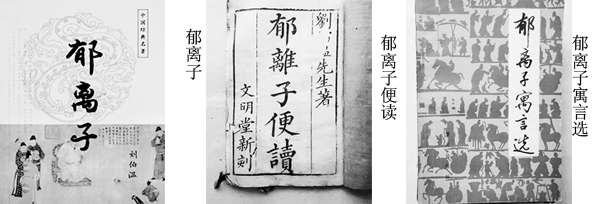 中国经典名著
郁离子
刘伯温
郁离子
先生著
郁離子便讀
文明堂新刻
郁离子便读
郁离子寓言选
郁离子寓言选